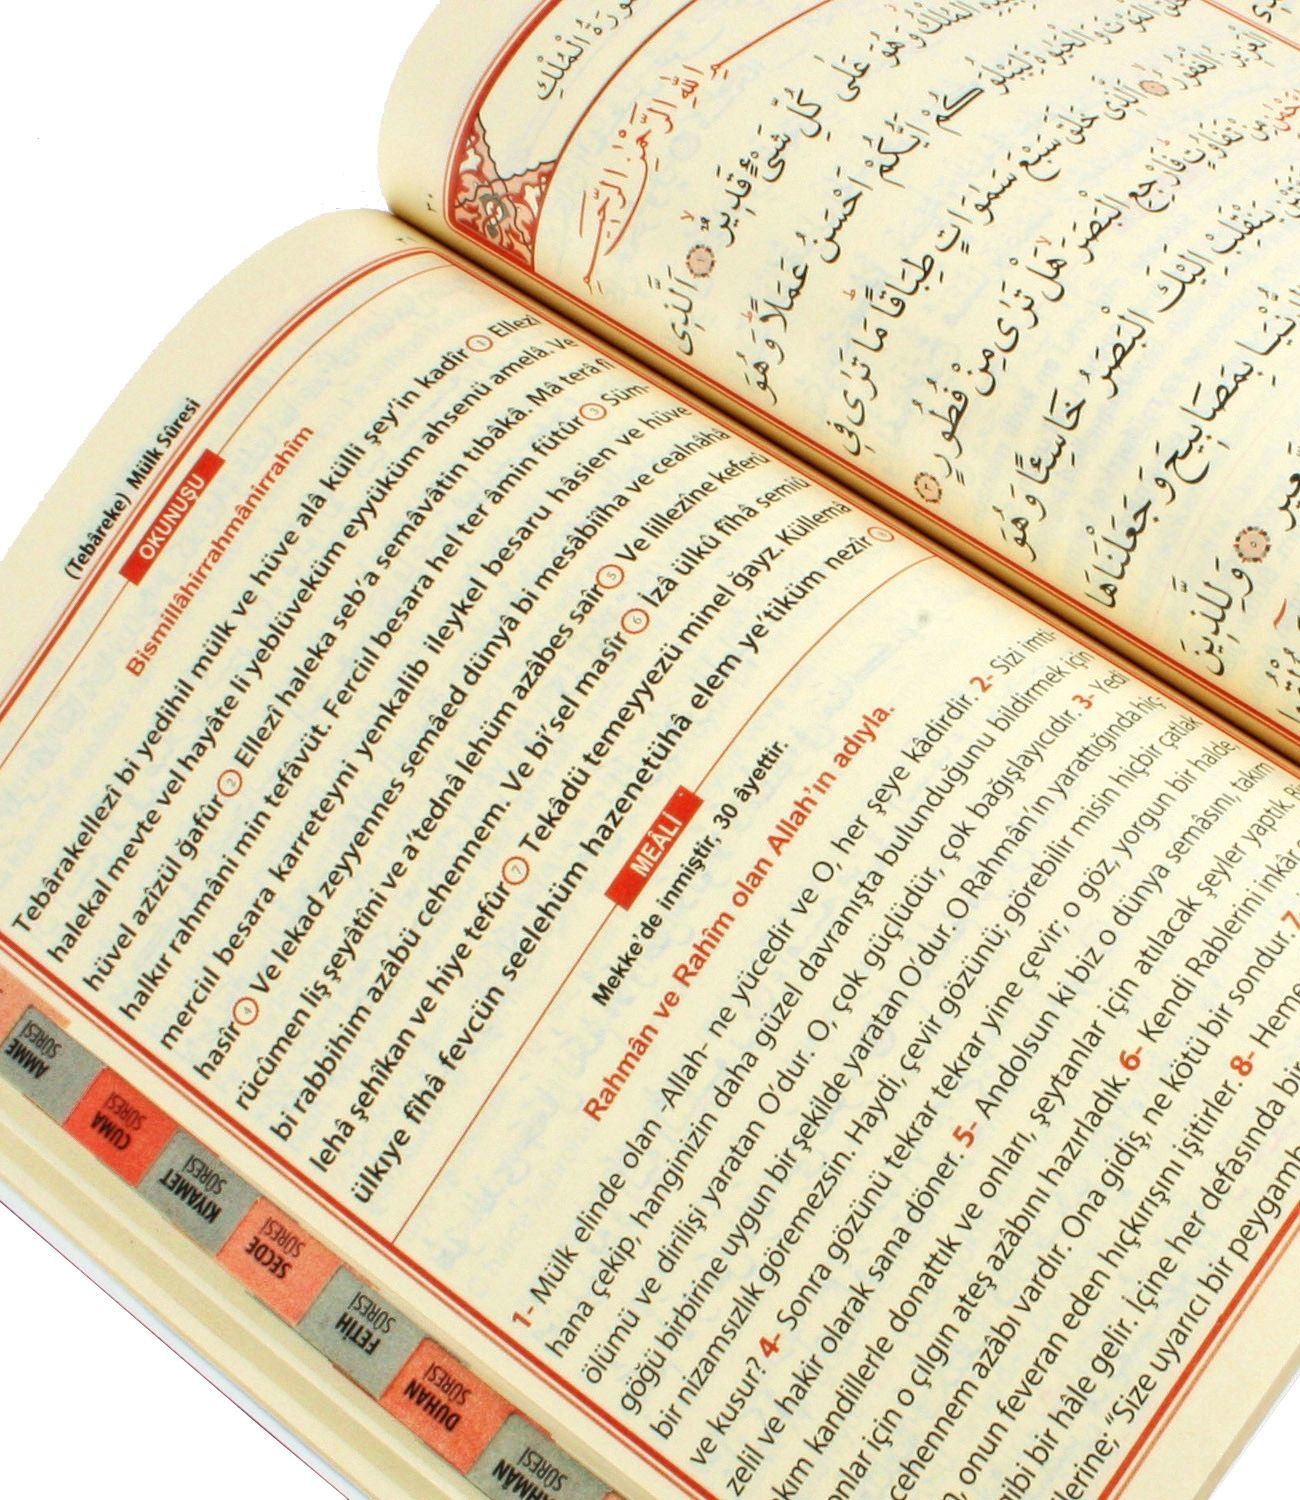 (Tebâreke) Mülk Sûresi
OKUNUŞU
Bismillâhirrahmânirrahîm
Tebârakellezî bi yedihil mülk ve hüve alâ külli şey'in kadîr 1 Ellezî
halekal mevte vel hayâte li yeblüveküm eyyüküm ahsenü amelâ. Ve
hüvel azîzül ğafûr 2 Ellezî haleka seb'a semâvâtin tıbâkâ. Mâ terâ fî
halkır rahmâni min tefâvüt. Ferciıl besara hel ter âmin fütûr 3 Süm-
merciıl besara karreteyni yenkalib ileykel besaru hâsien ve hüve
hasîr 4 Ve lekad zeyyennes semâed dünyâ bi mesâbîiha ve cealnâhâ
rücûmen liş şeyâtîni ve a'tednâ lehüm azâbes saîr 5 Ve lillezîne keferû
bi rabbihim azâbü cehennem. Ve bi'sel masîr 6 İzâ ülkû fîhâ semiû
lehâ şehîkan ve hiye tefûr 7 Tekâdü temeyyezü minel ğayz. Küllemâ
ülkıye fîhâ fevcün seelehüm hazenetühâ elem ye'tiküm nezîr 8
MEÂLİ
Mekke'de inmiştir, 30 âyettir.
Rahmân ve Rahîm olan Allah'ın adıyla.
1- Mülk elinde olan -Allah- ne yücedir ve O, her şeye kâdirdir. 2- Sizi imti-
hana çekip, hanginizin daha güzel davranışta bulunduğunu bildirmek için
ölümü ve dirilişi yaratan O'dur. O, çok güçlüdür, çok bağışlayıcıdır. 3- Yedi
göğü birbirine uygun bir şekilde yaratan O'dur. O Rahmân'ın yarattığında hiç-
bir nizamsızlık göremezsin. Haydi, çevir gözünü; görebilir misin hiçbir çatlak
ve kusur? 4- Sonra gözünü tekrar tekrar yine çevir; o göz, yorgun bir halde,
zelil ve hakir olarak sana döner. 5- Andolsun ki biz o dünya semâsını, takım
kım kandillerle donattık ve onları, şeytanlar için atılacak şeyler yaptık.
onlar için o çılgın ateş azabını hazırladık. 6- Kendi Rablerini inkâr
cehennem azâbı vardır. Ona gidiş, ne kötü bir sondur. 7
onun feveran eden hıçkırışını işitirler. 8- Heme
gibi bir hâle gelir. İçine her defasında bir
lerine; "Size uyarıcı bir peygamb
AMME SÛRESİ
CUMA SÛRESİ
KIYAMET SÛRESİ
SECDE SÛRESİ
FETİH SÛRESİ
DUHAN SÛRESİ
HMÂN SÛRESİ
سُورَةُ الْمُلْكِ
بِسْمِ اللّٰهِ الرَّحْمٰنِ الرَّحِيمِ
الْمُلْكُ وَهُوَ عَلٰى كُلِّ شَىْءٍ قَدِيرٌ ١ اَلَّذِى
الْمَوْتَ وَالْحَيٰوةَ لِيَبْلُوَكُمْ اَيُّكُمْ اَحْسَنُ عَمَلًا وَهُوَ
الْعَزِيزُ الْغَفُورُ ٢ اَلَّذِى خَلَقَ سَبْعَ سَمٰوَاتٍ طِبَاقًا مَا تَرٰى فِى
مِنْ تَفَاوُتٍ فَارْجِعِ الْبَصَرَ هَلْ تَرٰى مِنْ فُطُورٍ ٣
يَنْقَلِبْ اِلَيْكَ الْبَصَرُ خَاسِئًا وَهُوَ
الدُّنْيَا بِمَصَابِيحَ وَجَعَلْنَاهَا
السَّعِيرِ ٥ وَلِلَّذِينَ